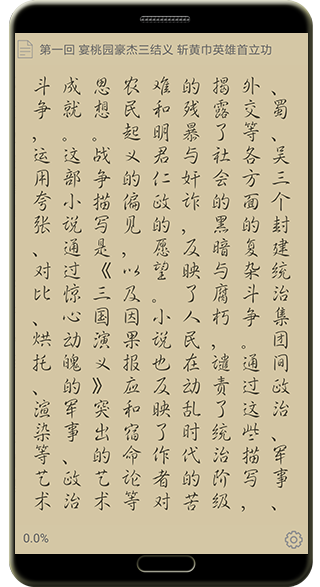 第一回 宴桃园豪杰三结义 斩黄巾英雄首立功
、蜀、吴三个封建统治集团间政治、军事、
外交等各方面的复杂斗争。通过这些描写，
揭露了社会的黑暗与腐朽，谴责了统治阶级
的残暴与奸诈，反映了人民在动乱时代的苦
难和明君仁政的愿望。小说也反映了作者对
农民起义的偏见，以及因果报应和宿命论等
思想。战争描写是《三国演义》突出的艺术
成就。这部小说通过惊心动魄的军事、政治
斗争，运用夸张、对比、烘托、渲染等艺术
0.0%